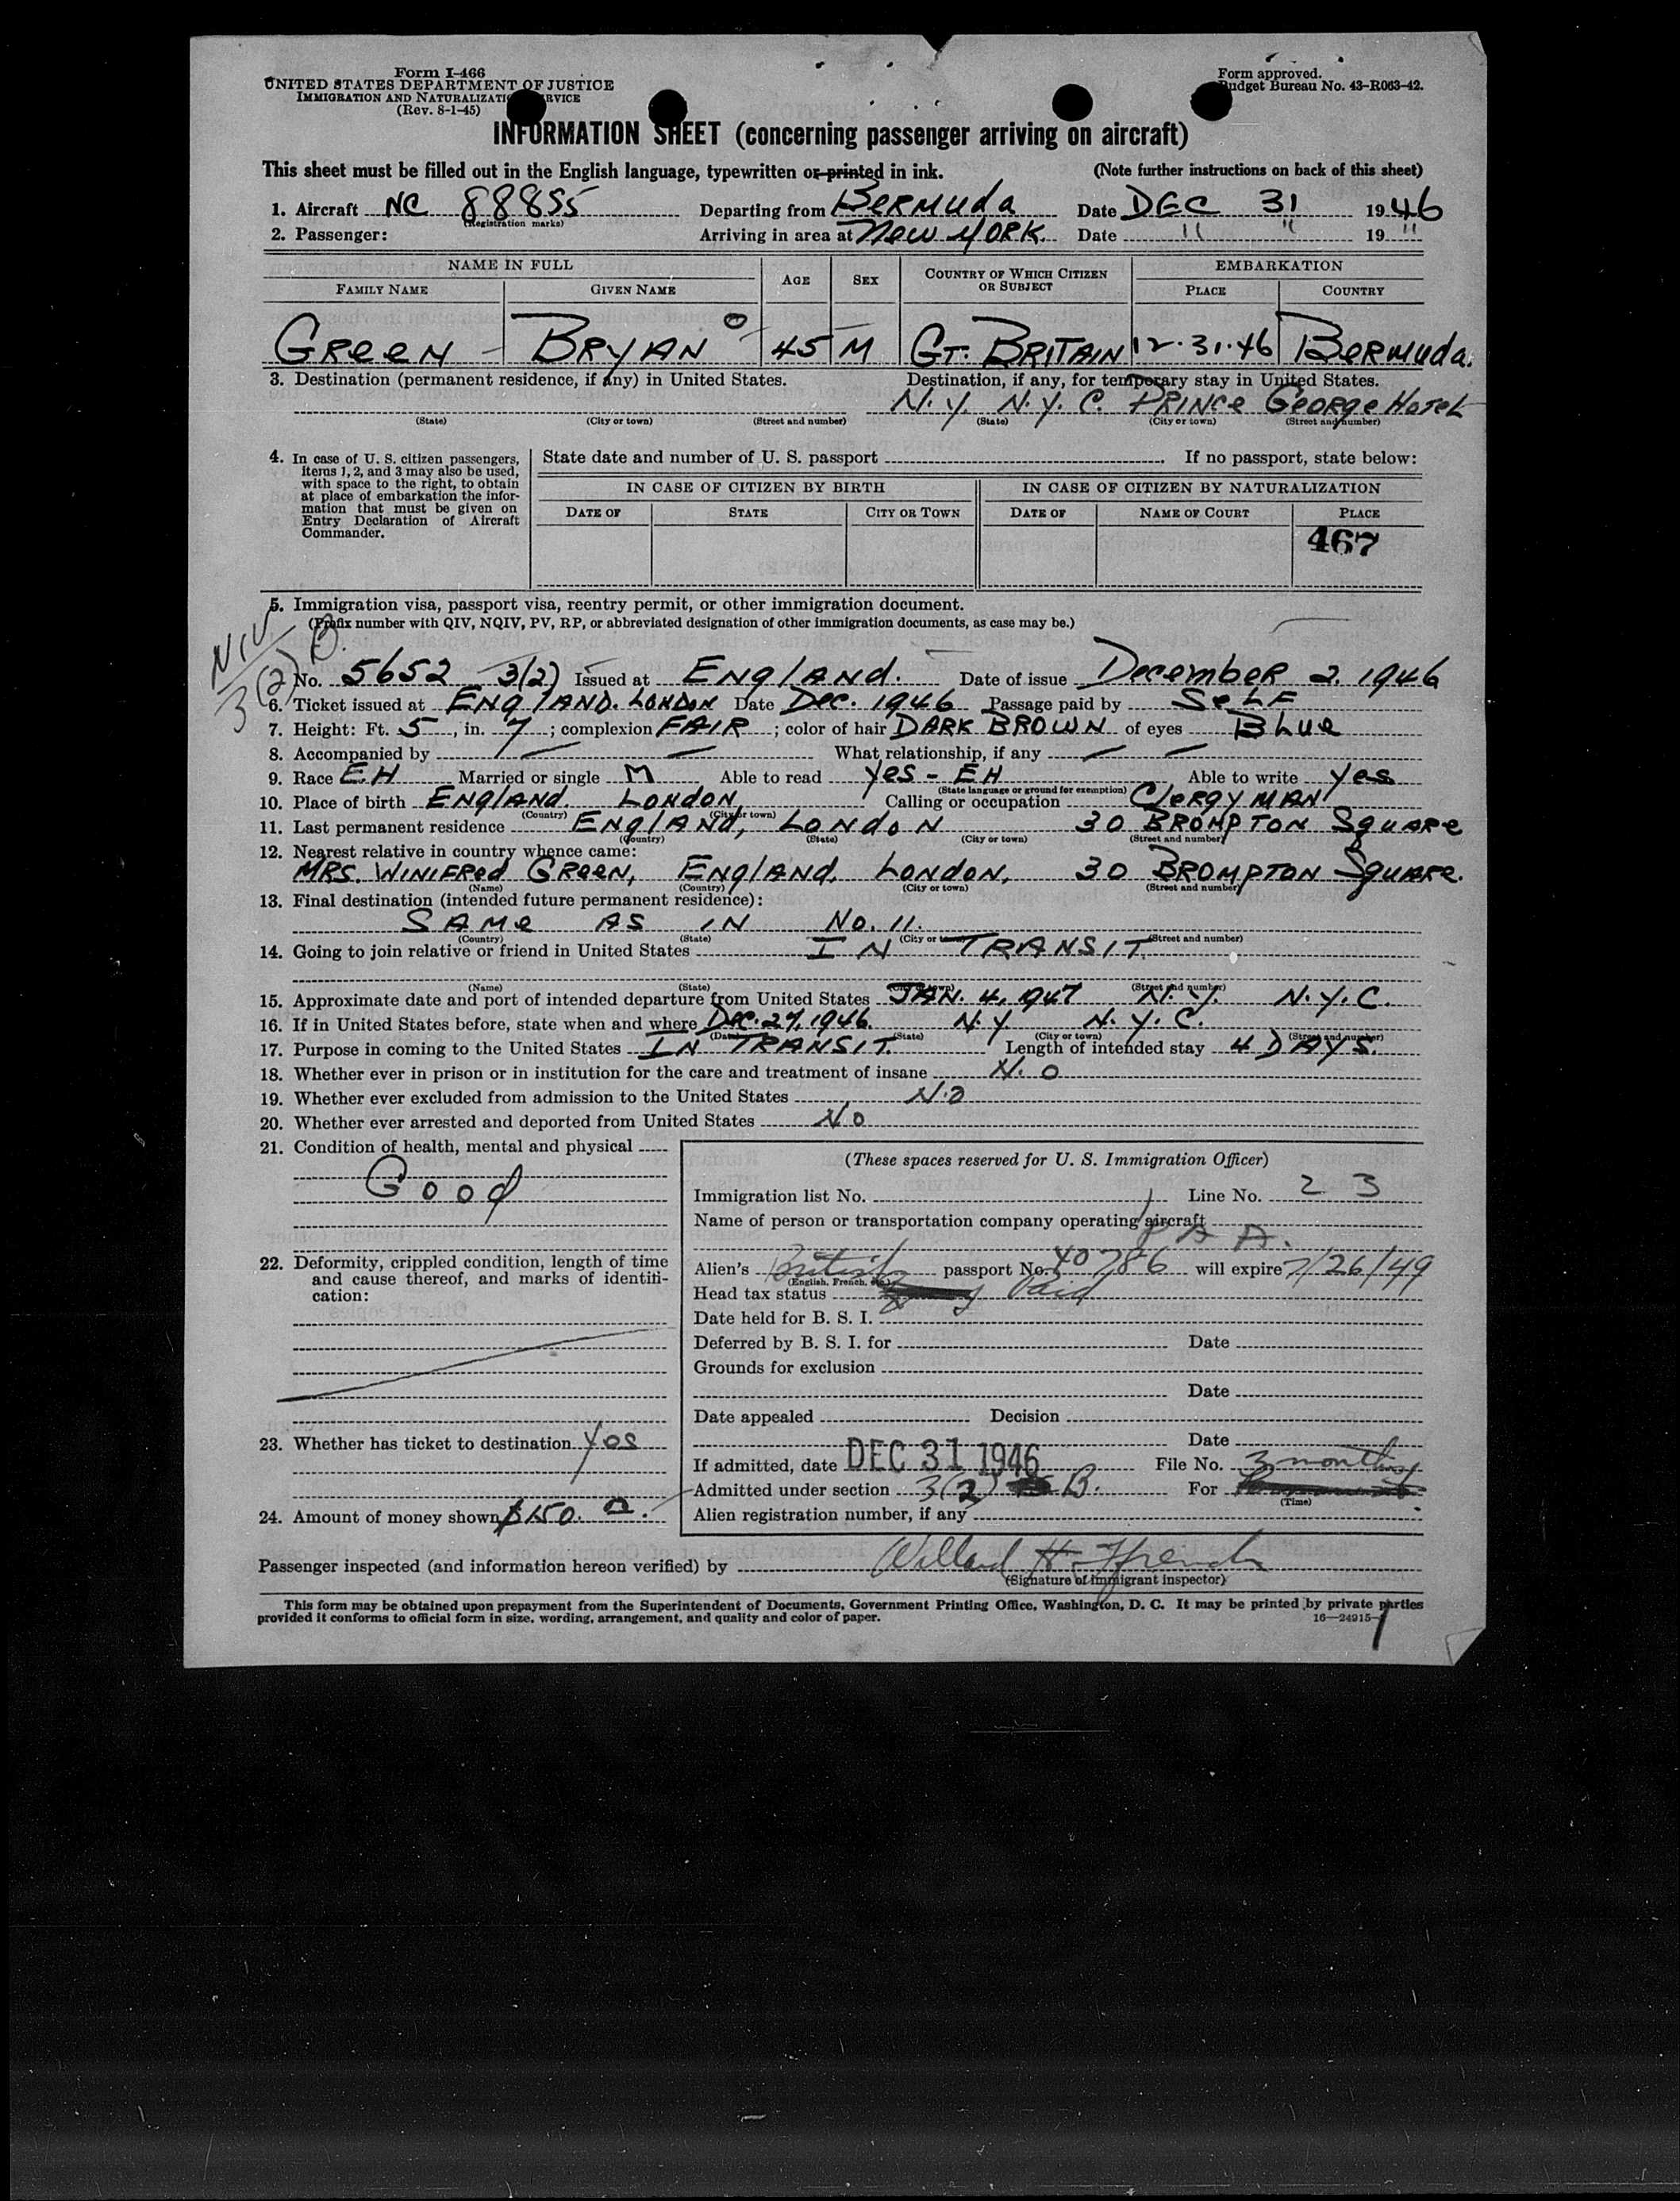 Form I-466
UNITED STATES DEPARTMENT OF JUSTICE
IMMIGRATION AND NATURALIZATION SERVICE
(Rev. 8-1-45)
Form approved.
Budget Bureau No. 43-R063-42.
INFORMATION SHEET (concerning passenger arriving on aircraft)
This sheet must be filled out in the English language, typewritten or printed in ink. (Note further instructions on back of this sheet)
1. Aircraft NC 88855 Departing from BERMUDA Date DEC 31 1946
(Registration marks)
2. Passenger: Arriving in area at NEW YORK. Date " " 19 "
NAME IN FULL AGE SEX COUNTRY OF WHICH CITIZEN OR SUBJECT EMBARKATION
FAMILY NAME GIVEN NAME PLACE COUNTRY
GREEN - BRYAN O 45 M GT. BRITAIN 12.31.46 BERMUDA.
3. Destination (permanent residence, if any) in United States. Destination, if any, for temporary stay in United States.
N.Y. N.Y.C. PRINCE GEORGE HOTEL
(State) (City or town) (Street and number) (State) (City or town) (Street and number)
4. In case of U. S. citizen passengers, items 1, 2, and 3 may also be used, with space to the right, to obtain at place of embarkation the information that must be given on Entry Declaration of Aircraft Commander.
State date and number of U. S. passport If no passport, state below:
IN CASE OF CITIZEN BY BIRTH IN CASE OF CITIZEN BY NATURALIZATION
DATE OF STATE CITY OR TOWN DATE OF NAME OF COURT PLACE
467
5. Immigration visa, passport visa, reentry permit, or other immigration document.
(Prefix number with QIV, NQIV, PV, RP, or abbreviated designation of other immigration documents, as case may be.)
NIV 3(2) B.
No. 5652 3(2) Issued at ENGLAND. Date of issue DECEMBER 2. 1946
6. Ticket issued at ENGLAND. LONDON Date DEC. 1946 Passage paid by SELF
7. Height: Ft. 5, in. 7; complexion FAIR; color of hair DARK BROWN of eyes BLUE
8. Accompanied by — — What relationship, if any — —
9. Race EH Married or single M Able to read YES - EH Able to write YES
(State language or ground for exemption)
10. Place of birth ENGLAND. LONDON, Calling or occupation CLERGYMAN
(Country) (City or town)
11. Last permanent residence ENGLAND, LONDON 30 BROMPTON SQUARE
(Country) (State) (City or town) (Street and number)
12. Nearest relative in country whence came:
MRS. WINIFRED GREEN, ENGLAND, LONDON, 30 BROMPTON SQUARE.
(Name) (Country) (City or town) (Street and number)
13. Final destination (intended future permanent residence):
SAME AS IN No. 11.
(Country) (State) (City or town) (Street and number)
14. Going to join relative or friend in United States IN TRANSIT.
(Name) (State) (City or town) (Street and number)
15. Approximate date and port of intended departure from United States JAN. 4, 1947 N.Y. N.Y.C.
16. If in United States before, state when and where DEC. 27, 1946. N.Y. N.Y.C.
(Date) (State) (City or town) (Street and number)
17. Purpose in coming to the United States IN TRANSIT. Length of intended stay 4 DAYS.
18. Whether ever in prison or in institution for the care and treatment of insane N.O
19. Whether ever excluded from admission to the United States N.O
20. Whether ever arrested and deported from United States NO
21. Condition of health, mental and physical
GOOD
22. Deformity, crippled condition, length of time and cause thereof, and marks of identification:
23. Whether has ticket to destination YES
24. Amount of money shown $150.
(These spaces reserved for U. S. Immigration Officer)
Immigration list No. Line No. 23
Name of person or transportation company operating aircraft
P A A.
Alien's British passport No. 40786 will expire 7/26/49
(English, French, etc.)
Head tax status Paid
Date held for B. S. I.
Deferred by B. S. I. for Date
Grounds for exclusion
Date
Date appealed Decision
Date
If admitted, date DEC 31 1946 File No. 3 months
Admitted under section 3(2) B. For
(Time)
Alien registration number, if any
Passenger inspected (and information hereon verified) by Willard H. Ffrench
(Signature of immigrant inspector)
This form may be obtained upon prepayment from the Superintendent of Documents, Government Printing Office, Washington, D. C. It may be printed by private parties
provided it conforms to official form in size, wording, arrangement, and quality and color of paper. 16—24915-1